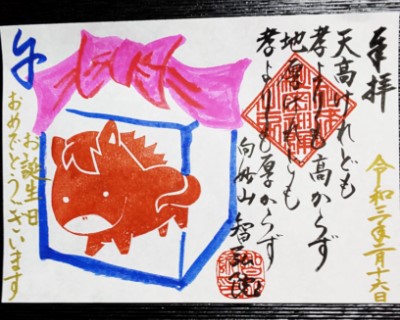 奉拝
天高けれども
孝よりも高からず
地厚けれども
孝よりも厚からず
向妙山 智弘院
令和三年二月十六日
午
お誕生日
おめでとうございます